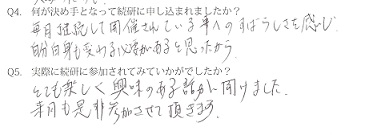 Q4. 何が決め手となって続研に申し込まれましたか？
毎月継続して開催されている事へのすばらしさを感じ
自分自身も変わる必要があると思ったから
Q5. 実際に続研に参加されてみていかがでしたか？
とても楽しく興味のある話が聞けました.
来月も是非参加させて頂きます.